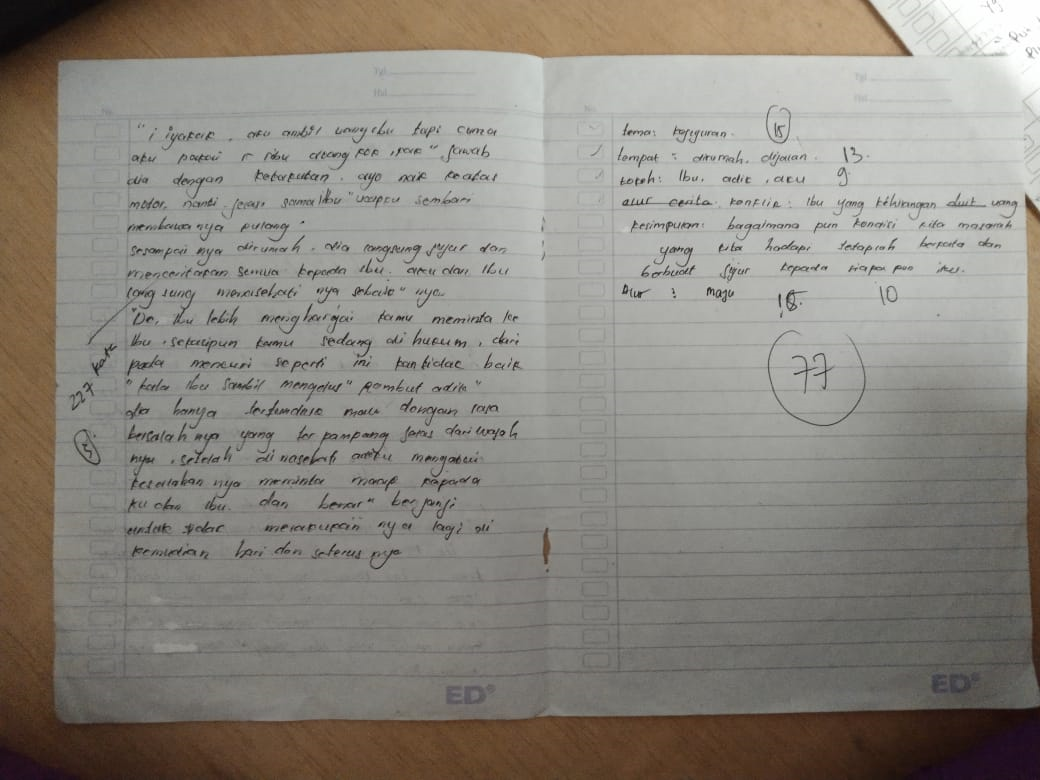 Tgl
Hal
No.
"i iyakak, aku ambil uang ibu tapi cuma
aku pakai 5 ribu doang kok, kak" Jawab
dia dengan ketakutan. ayo naik keatas
motor, nanti jelasi sama Ibu" ucapku sembari
membawa nya pulang.
Sesampai nya dirumah. dia langsung jujur dan
menceritakan semua kepada ibu. aku dan Ibu
langsung menasehati nya sebaik" nya.
"De, Ibu lebih menghargai kamu meminta ke
Ibu, sekalipun kamu sedang di hukum, dari
pada mencuri seperti ini kan tidak baik
" kata Ibu sambil mengelus" Rambut adik"
dia hanya tertunduk malu dengan rasa
bersalah nya yang ter pampang jelas dari wajah
nya, setelah di nasehati adiku mengakui
kesalahan nya meminta maaf kepada
ku dan Ibu. dan benar" berjanji
untuk tidak melakukan nya lagi di
kemudian hari dan seterus nya
227 kata
3
ED
Tgl
Hal
No.
tema: kejujuran. 15
tempat: dirumah, dijalan. 13.
tokoh: Ibu, adik, aku 9
alur cerita. konflik: Ibu yang kehilangan duit uang
kesimpulan: bagaimana pun kondisi kita masalah
yang kita hadapi tetaplah berkata dan
berbuat jujur kepada siapa pun itu.
Alur : maju 10
77
ED